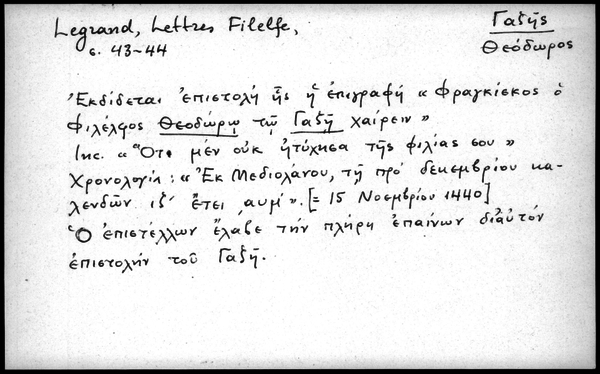 Legrand, Lettres Filelfe,
σ. 43-44
Γαζῆς
Θεόδωρος
Ἐκδίδεται ἐπιστολή ἧς ἡ ἐπιγραφή « Φραγκίσκος ὁ
Φιλέλφος Θεοδώρῳ τῷ Γαζῇ χαίρειν »
Inc. « Ὅτι μέν οὐκ ἠτύχησα τῆς φιλίας σου »
Χρονολογία : « Ἐκ Μεδιολάνου, τῇ πρό δεκεμβρίου κα-
λενδῶν ιζ′ ἔτει ͵αυμ′ ». [= 15 Νοεμβρίου 1440]
Ὁ ἐπιστέλλων ἔλαβε τήν πλήρη ἐπαίνων δι' αὐτόν
ἐπιστολήν τοῦ Γαζῆ.